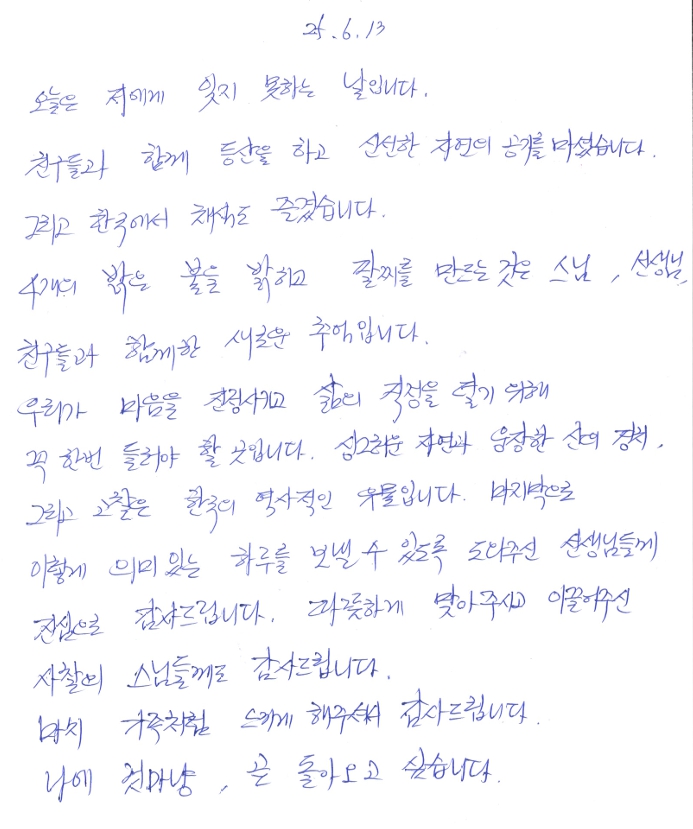 25.6.13
오늘은 저에게 잊지 못하는 날입니다.
친구들과 함께 등산을 하고 신선한 자연의 공기를 마셨습니다.
그리고 한국에서 채식도 즐겼습니다.
4개의 밝은 불을 밝히고 팔찌를 만드는 것은 스님, 선생님,
친구들과 함께한 새로운 추억입니다.
우리가 마음을 진정시키고 삶의 걱정을 덜기 위해
꼭 한번 들러야 할 곳입니다. 싱그러운 자연과 웅장한 산의 경치,
그리고 고찰은 한국의 역사적인 유물입니다. 마지막으로
이렇게 의미 있는 하루를 보낼 수 있도록 도와주신 선생님들께
진심으로 감사드립니다. 따뜻하게 맞아주시고 이끌어주신
사찰의 스님들께도 감사드립니다.
마치 가족처럼 느끼게 해주셔서 감사드립니다.
나에, 곧 돌아오고 싶습니다.